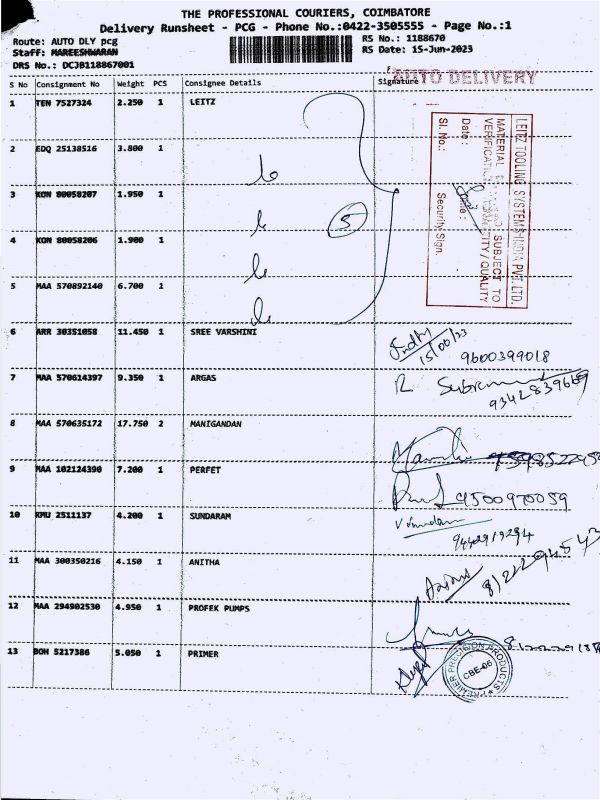 THE PROFESSIONAL COURIERS, COIMBATORE
Delivery Runsheet - PCG - Phone No.:0422-3505555 - Page No.:1
Route: AUTO DLY pcg
RS No.: 1188670
Staff: MAREESHWARAN
RS Date: 15-Jun-2023
DRS No.: DCJB118867001
AUTO DELIVERY
S No Consignment No Weight PCS Consignee Details Signature
1 TEN 7527324 2.250 1 LEITZ
2 EDQ 25138516 3.800 1
3 KON 80058207 1.950 1
4 KON 80058206 1.900 1
5 MAA 570892140 6.700 1
5
LEITZ TOOLING SYSTEMS INDIA PVT. LTD.
MATERIAL SUBJECT TO
VERIFICATION QUALITY
Date:
Sl. No.: Security Sign.
6 ARR 30351058 11.450 1 SREE VARSHINI
9600399018
7 MAA 570614397 9.350 1 ARGAS
9342839669
8 MAA 570635172 17.750 2 MANIGANDAN
9 MAA 102124390 7.200 1 PERFET
9500970059
10 KMU 2511137 4.200 1 SUNDARAM
9442919294
11 MAA 300350216 4.150 1 ANITHA
12 MAA 294902530 4.950 1 PROFEK PUMPS
13 BOM 5217386 5.050 1 PRIMER
PREMIER PRECISION PRODUCTS
CBE-06